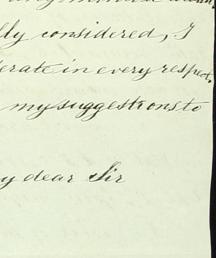 lly considered, I
derate in every respect,
my suggestions to
y dear Sir